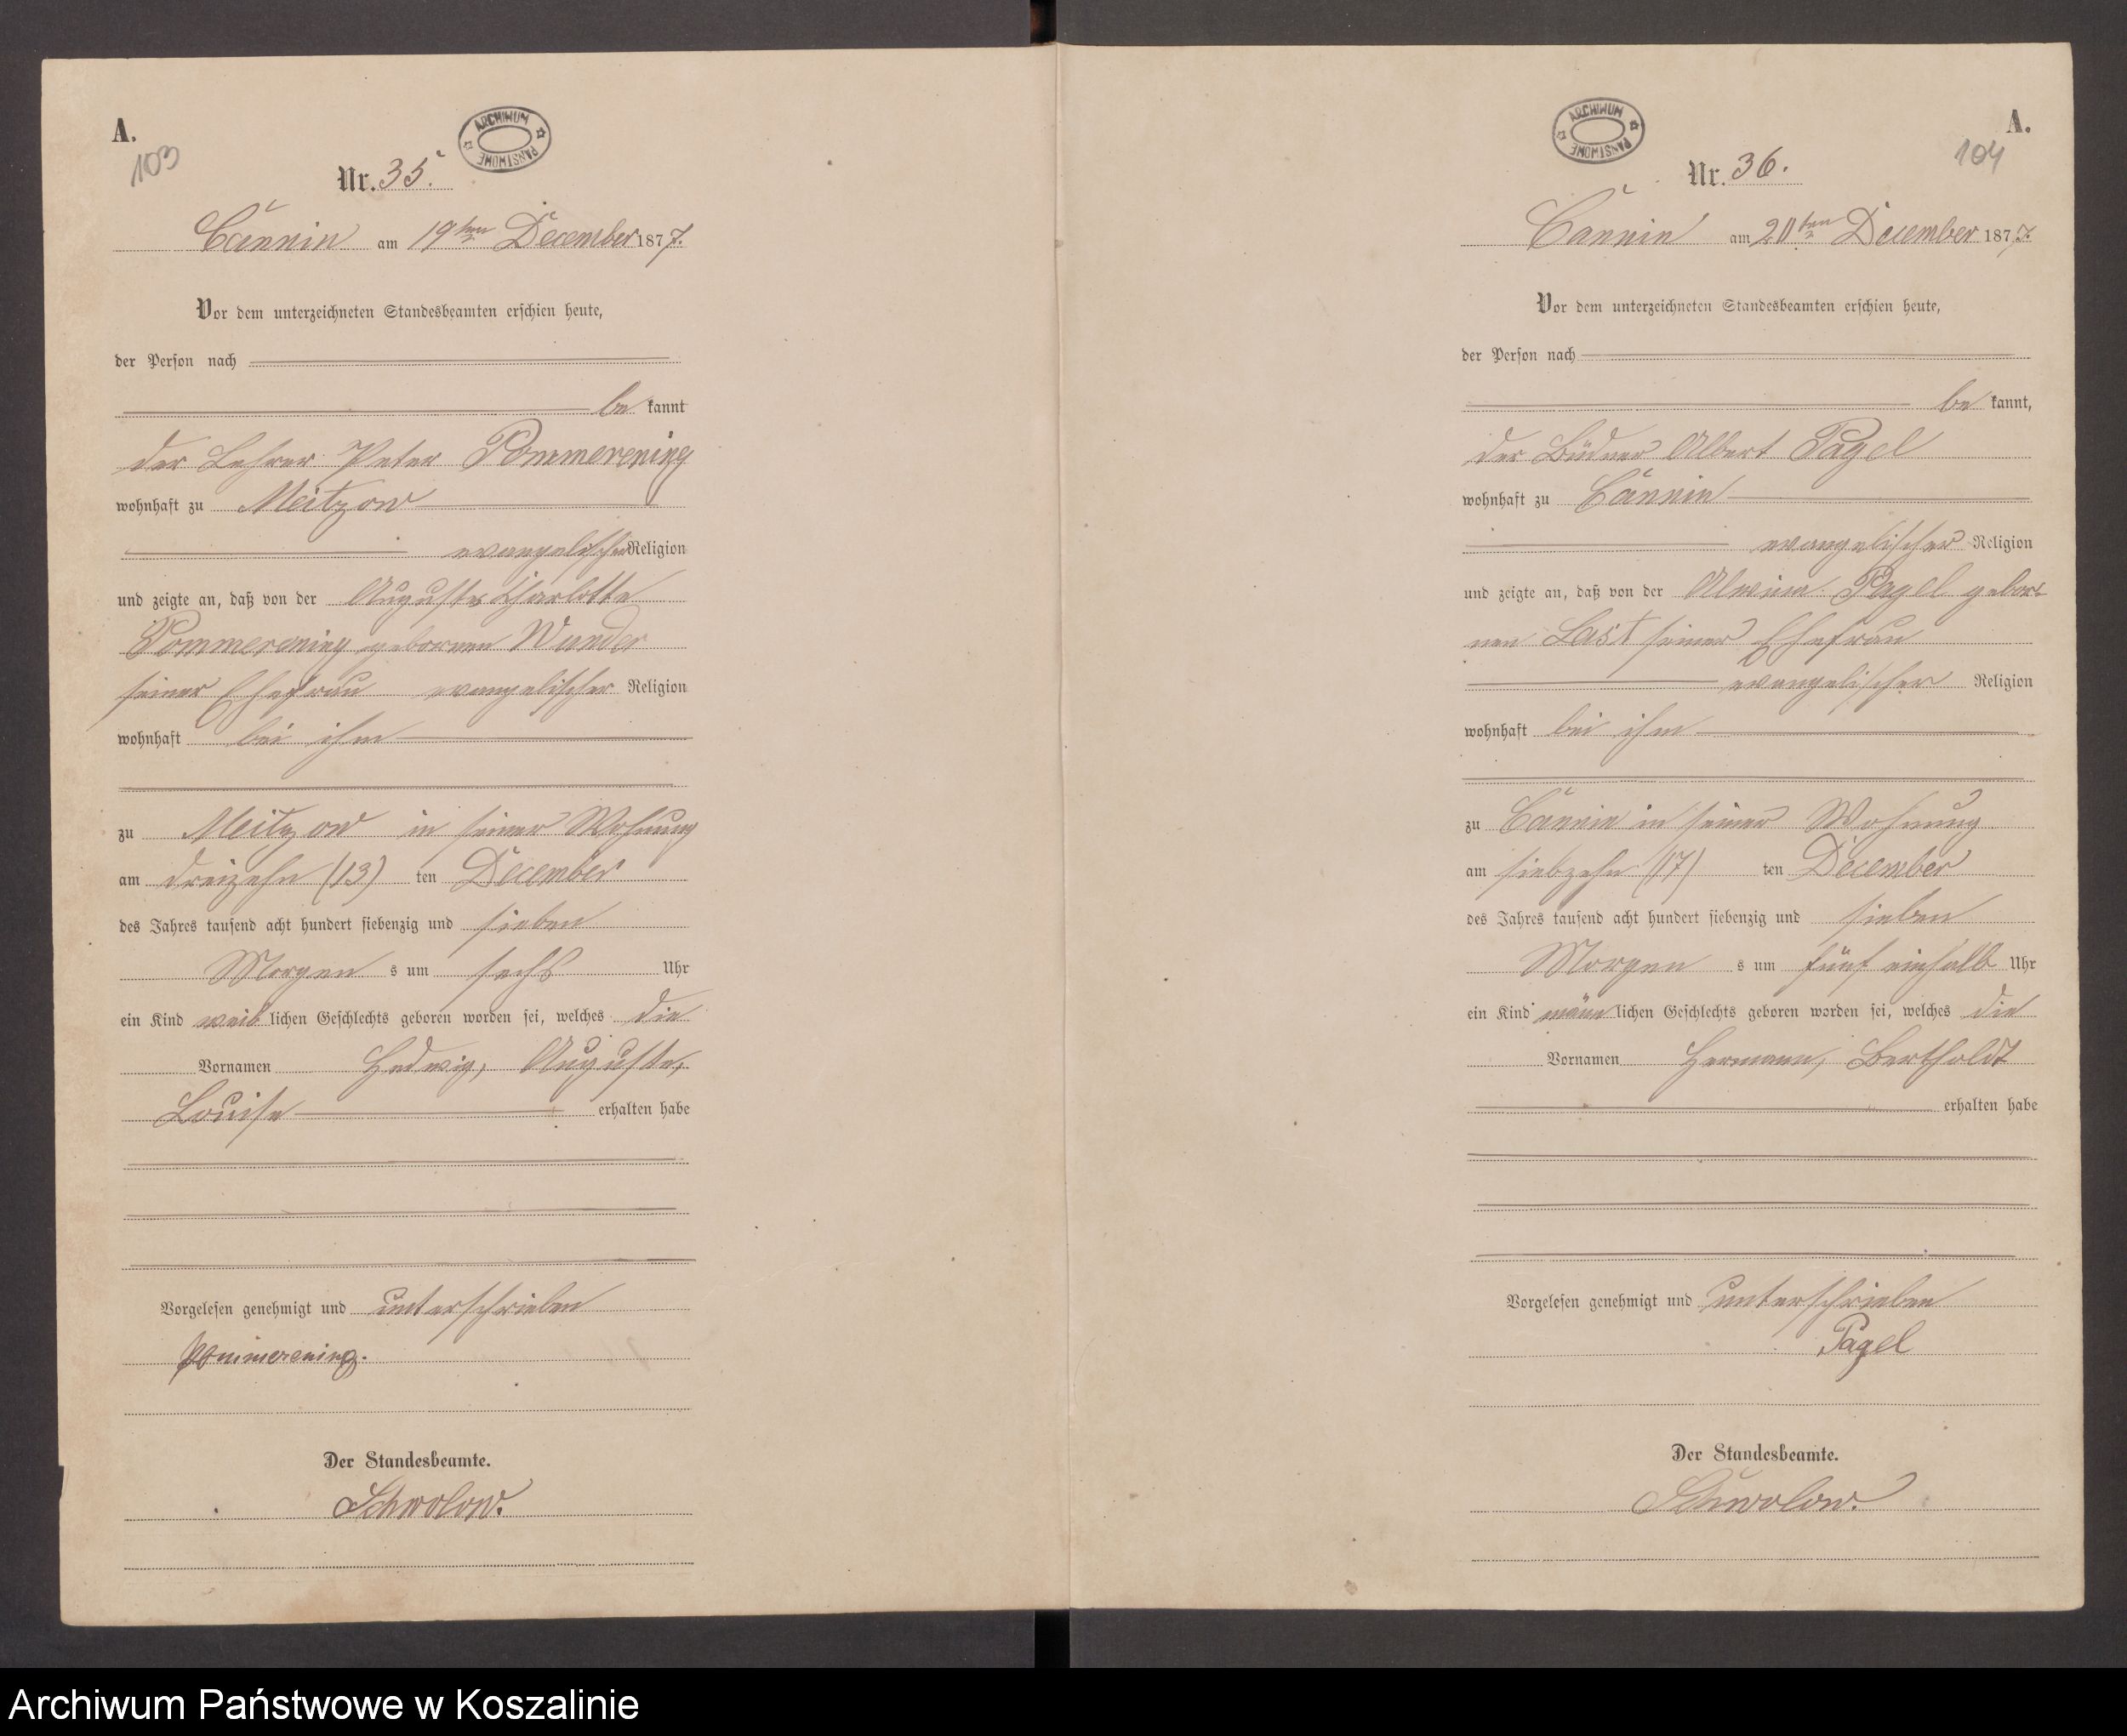 A.
103
ARCHIWUM PAŃSTWOWE
Nr. 35.
Cannin am 19ten December 1877.
Vor dem unterzeichneten Standesbeamten erschien heute,
der Person nach
be kannt
der Lehrer Peter Pommerening
wohnhaft zu Meitzow
evangelischer Religion
und zeigte an, daß von der Auguste Charlotte
Pommerening geborenen Wunder
seiner Ehefrau evangelischer Religion
wohnhaft bei ihm
zu Meitzow in seiner Wohnung
am dreizehn (13) ten December
des Jahres tausend acht hundert siebenzig und sieben
Morgen s um sechs Uhr
ein Kind weib lichen Geschlechts geboren worden sei, welches die
Vornamen Hedwig, Auguste,
Louise erhalten habe
Vorgelesen genehmigt und unterschrieben
Pommerening.
Der Standesbeamte.
Schwolow.
A.
104
ARCHIWUM PAŃSTWOWE
Nr. 36.
Cannin am 20ten December 1877.
Vor dem unterzeichneten Standesbeamten erschien heute,
der Person nach
be kannt,
der Büdner Albert Pagel
wohnhaft zu Cannin
evangelischer Religion
und zeigte an, daß von der Alwine Pagel gebor-
nen Last seiner Ehefrau
evangelischer Religion
wohnhaft bei ihm
zu Cannin in seiner Wohnung
am siebzehn (17) ten December
des Jahres tausend acht hundert siebenzig und sieben
Morgen s um fünf einhalb Uhr
ein Kind männ lichen Geschlechts geboren worden sei, welches die
Vornamen Hermann, Bertholdt
erhalten habe
Vorgelesen genehmigt und unterschrieben
Pagel
Der Standesbeamte.
Schwolow.
Archiwum Państwowe w Koszalinie